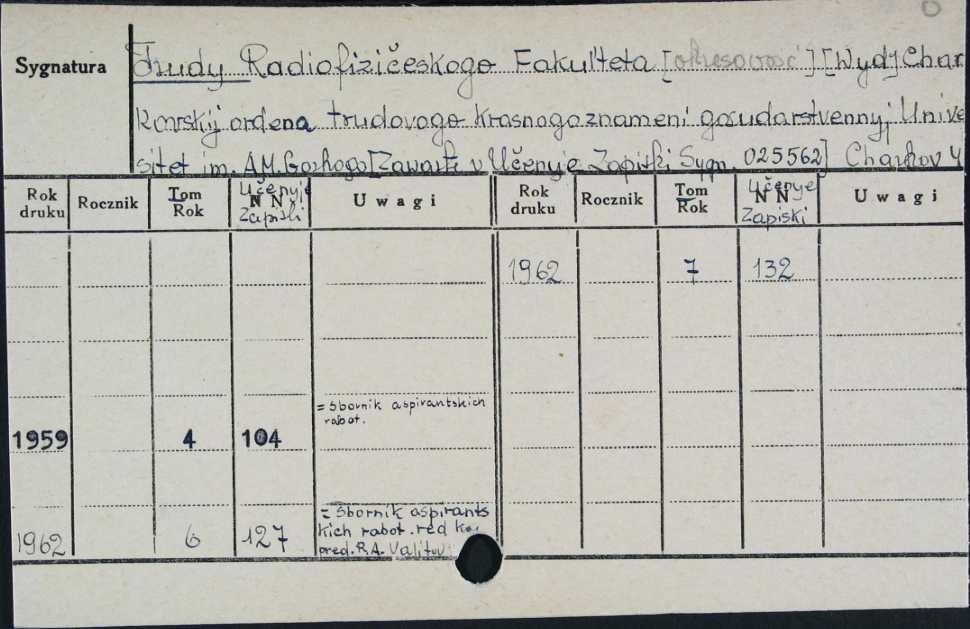 Sygnatura
Trudy Radiofizičeskogo Fakul'teta [okresowość] [Wyd] Char
kovskij ordena trudovogo krasnogoznameni gosudarstvennyj Unive
sitet im. A.M. Gor'kogo [Zawarte v Učenyje Zapiski Sygn. 025562] Char'kov 4
Rok druku Rocznik Tom Rok Učenyje NN Zapiski Uwagi Rok druku Rocznik Tom Rok Učenye NN Zapiski Uwagi
1962 7 132
= Sbornik aspirantskich
rabot.
1959 4 104
= Sbornik aspirants
kich rabot. red ko
1962 6 127 pred. R.A. Valitov